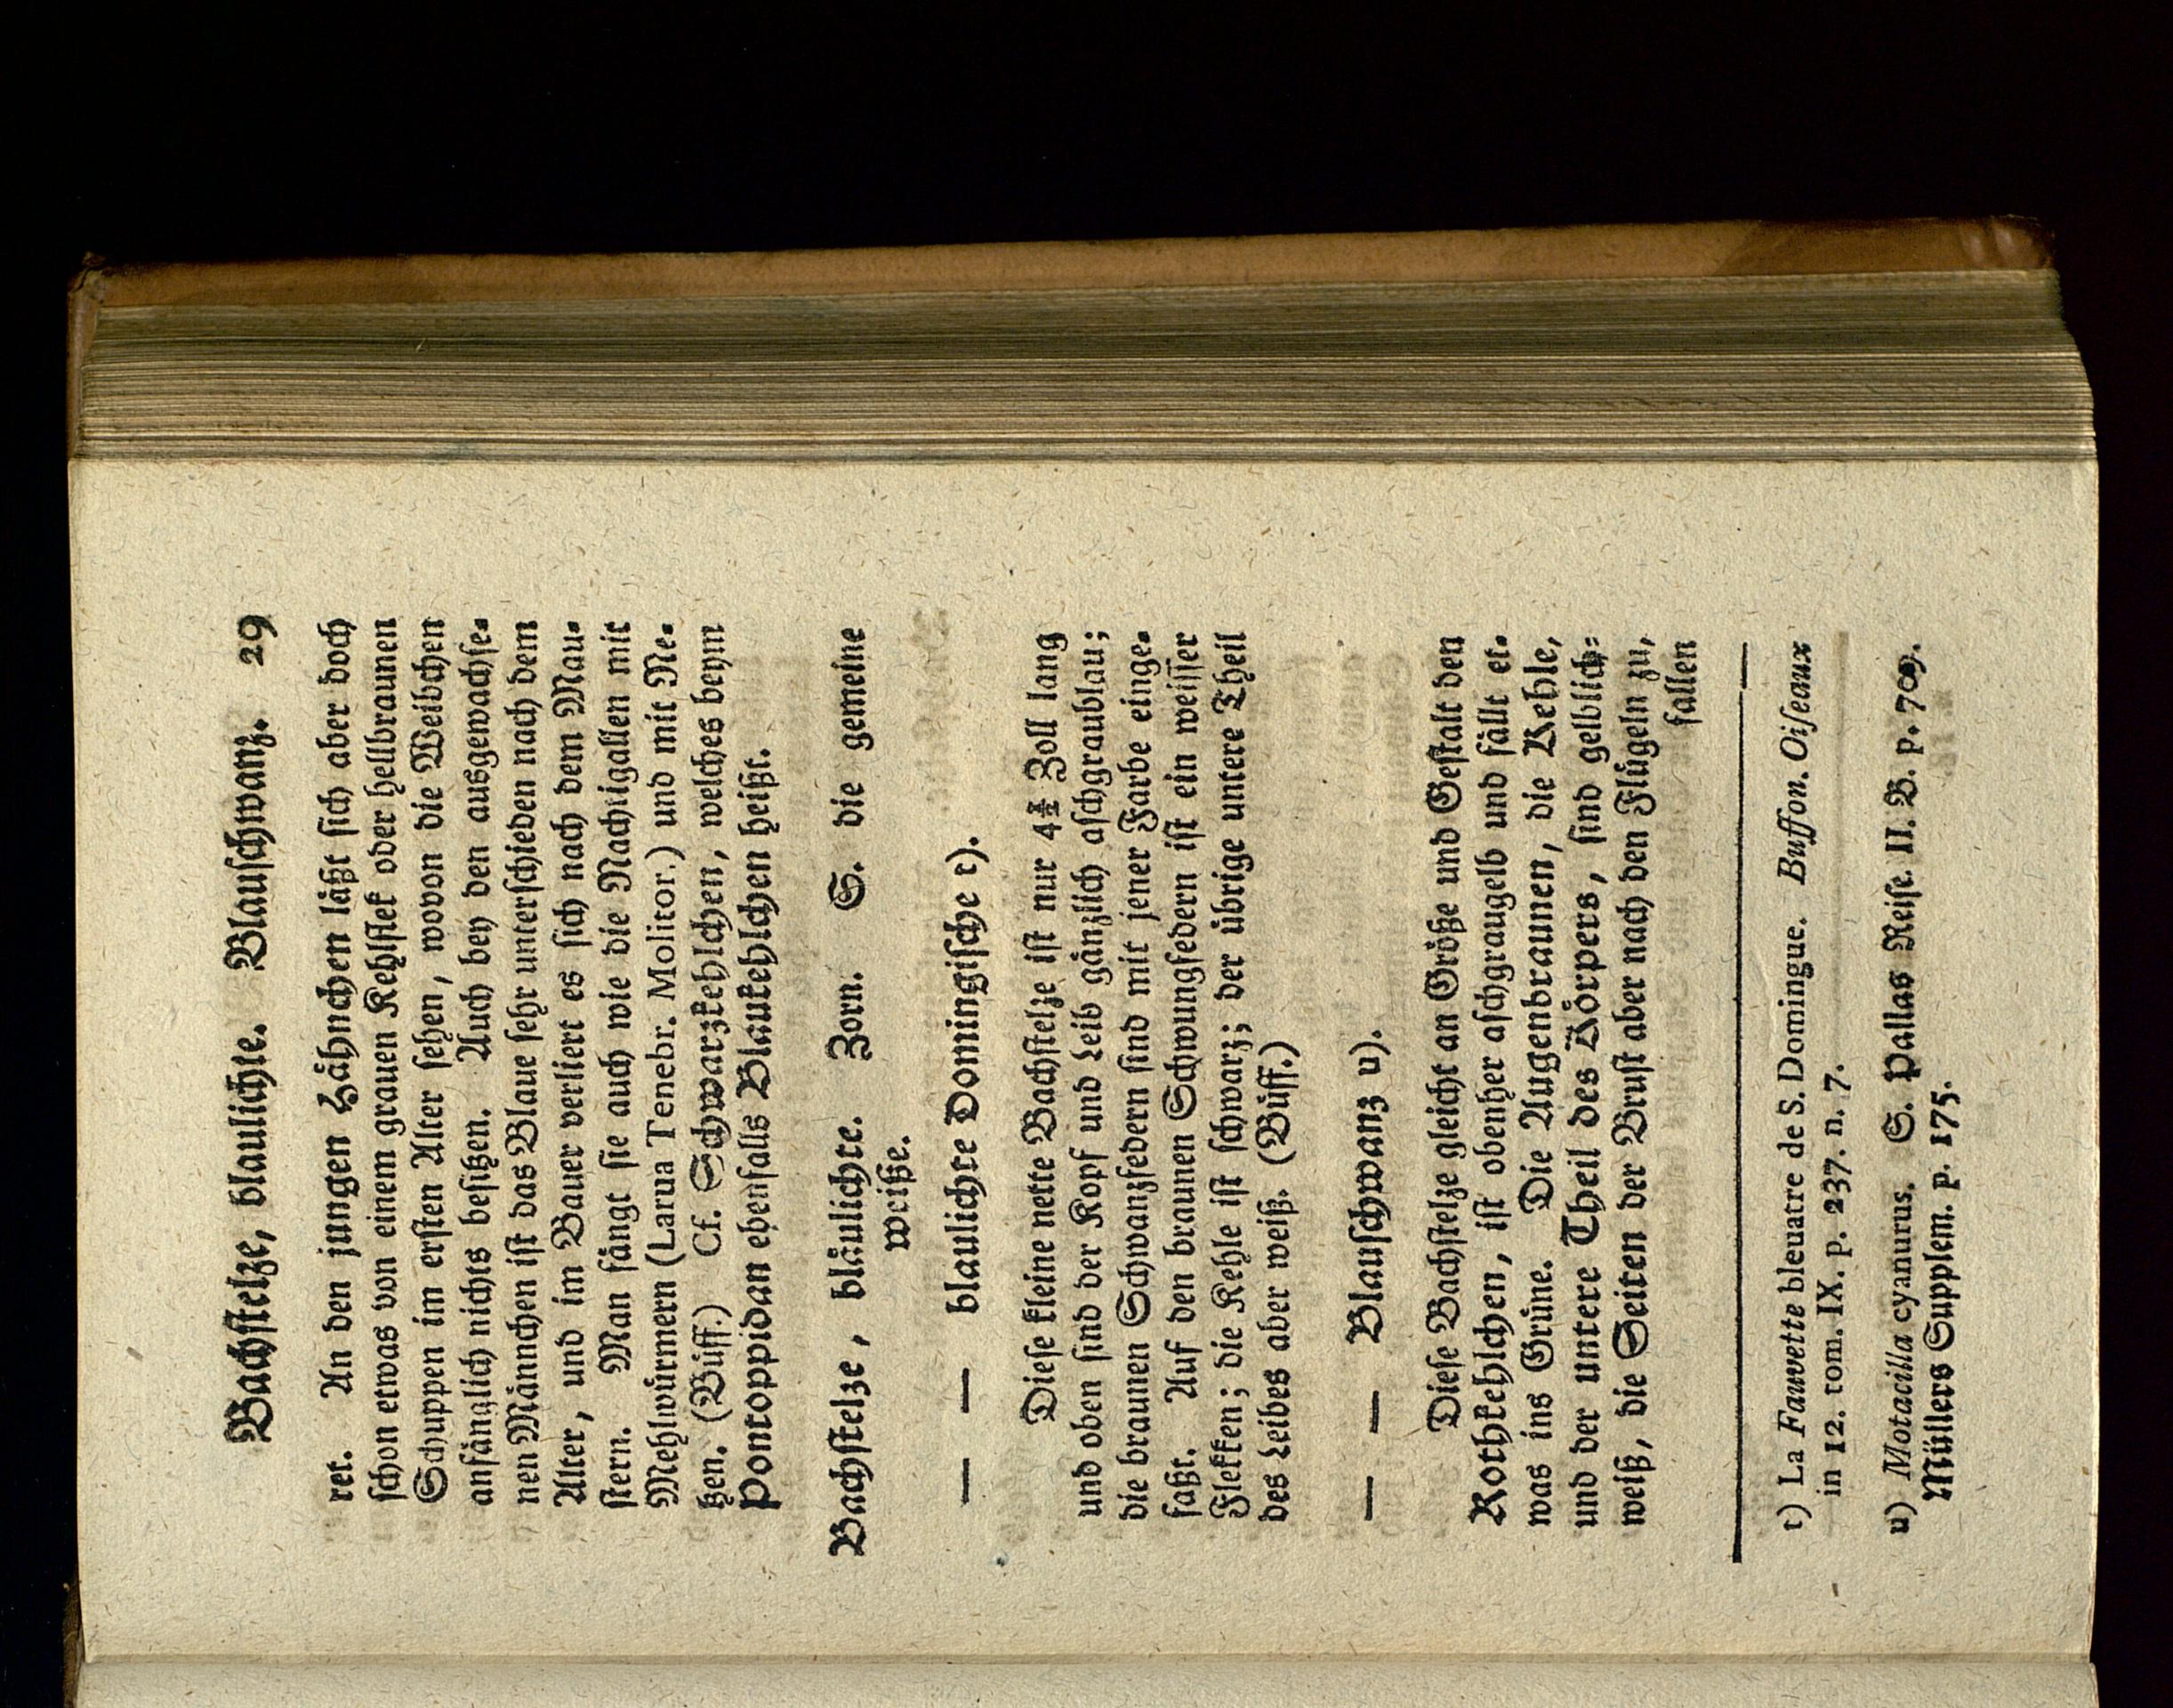 Bachſtelze, blaulichte. Blauſchwanz. 29
ret. An den jungen Hähnchen läßt ſich aber doch
ſchon etwas von einem grauen Kehlflek oder hellbraunen
Schuppen im erſten Alter ſehen, wovon die Weibchen
anfänglich nichts beſitzen. Auch bey den ausgewachſe-
nen Männchen iſt das Blaue ſehr unterſchieden nach dem
Alter, und im Bauer verliert es ſich nach dem Mau-
ſtern. Man fängt ſie auch wie die Nachtigallen mit
Mehlwürmern (Larua Tenebr. Molitor.) und mit Ne-
tzen. (Büff.) Cf. Schwarzkehlchen, welches beym
Pontoppidan ebenfalls Blaukehlchen heißt.
Bachſtelze, bläulichte. Zorn. S. die gemeine
weiße.
— — blaulichte Domingiſche t).
Dieſe kleine nette Bachſtelze iſt nur 4½ Zoll lang
und oben ſind der Kopf und Leib gänzlich aſchgraublau;
die braunen Schwanzfedern ſind mit jener Farbe einge-
faßt. Auf den braunen Schwungfedern iſt ein weiſſer
Flekken; die Kehle iſt ſchwarz; der übrige untere Theil
des Leibes aber weiß. (Büff.)
— — Blauſchwanz u).
Dieſe Bachſtelze gleicht an Größe und Geſtalt den
Rothkehlchen, iſt obenher aſchgraugelb und fällt et-
was ins Grüne. Die Augenbraunen, die Kehle,
und der untere Theil des Körpers, ſind gelblich-
weiß, die Seiten der Bruſt aber nach den Flügeln zu,
fallen
t) La Fauvette bleuatre de S. Domingue. Buffon. Oiſeaux
in 12. tom. IX. p. 237. n. 7.
u) Motacilla cyanurus. S. Pallas Reiſe. II. B. p. 709.
Müllers Supplem. p. 175.